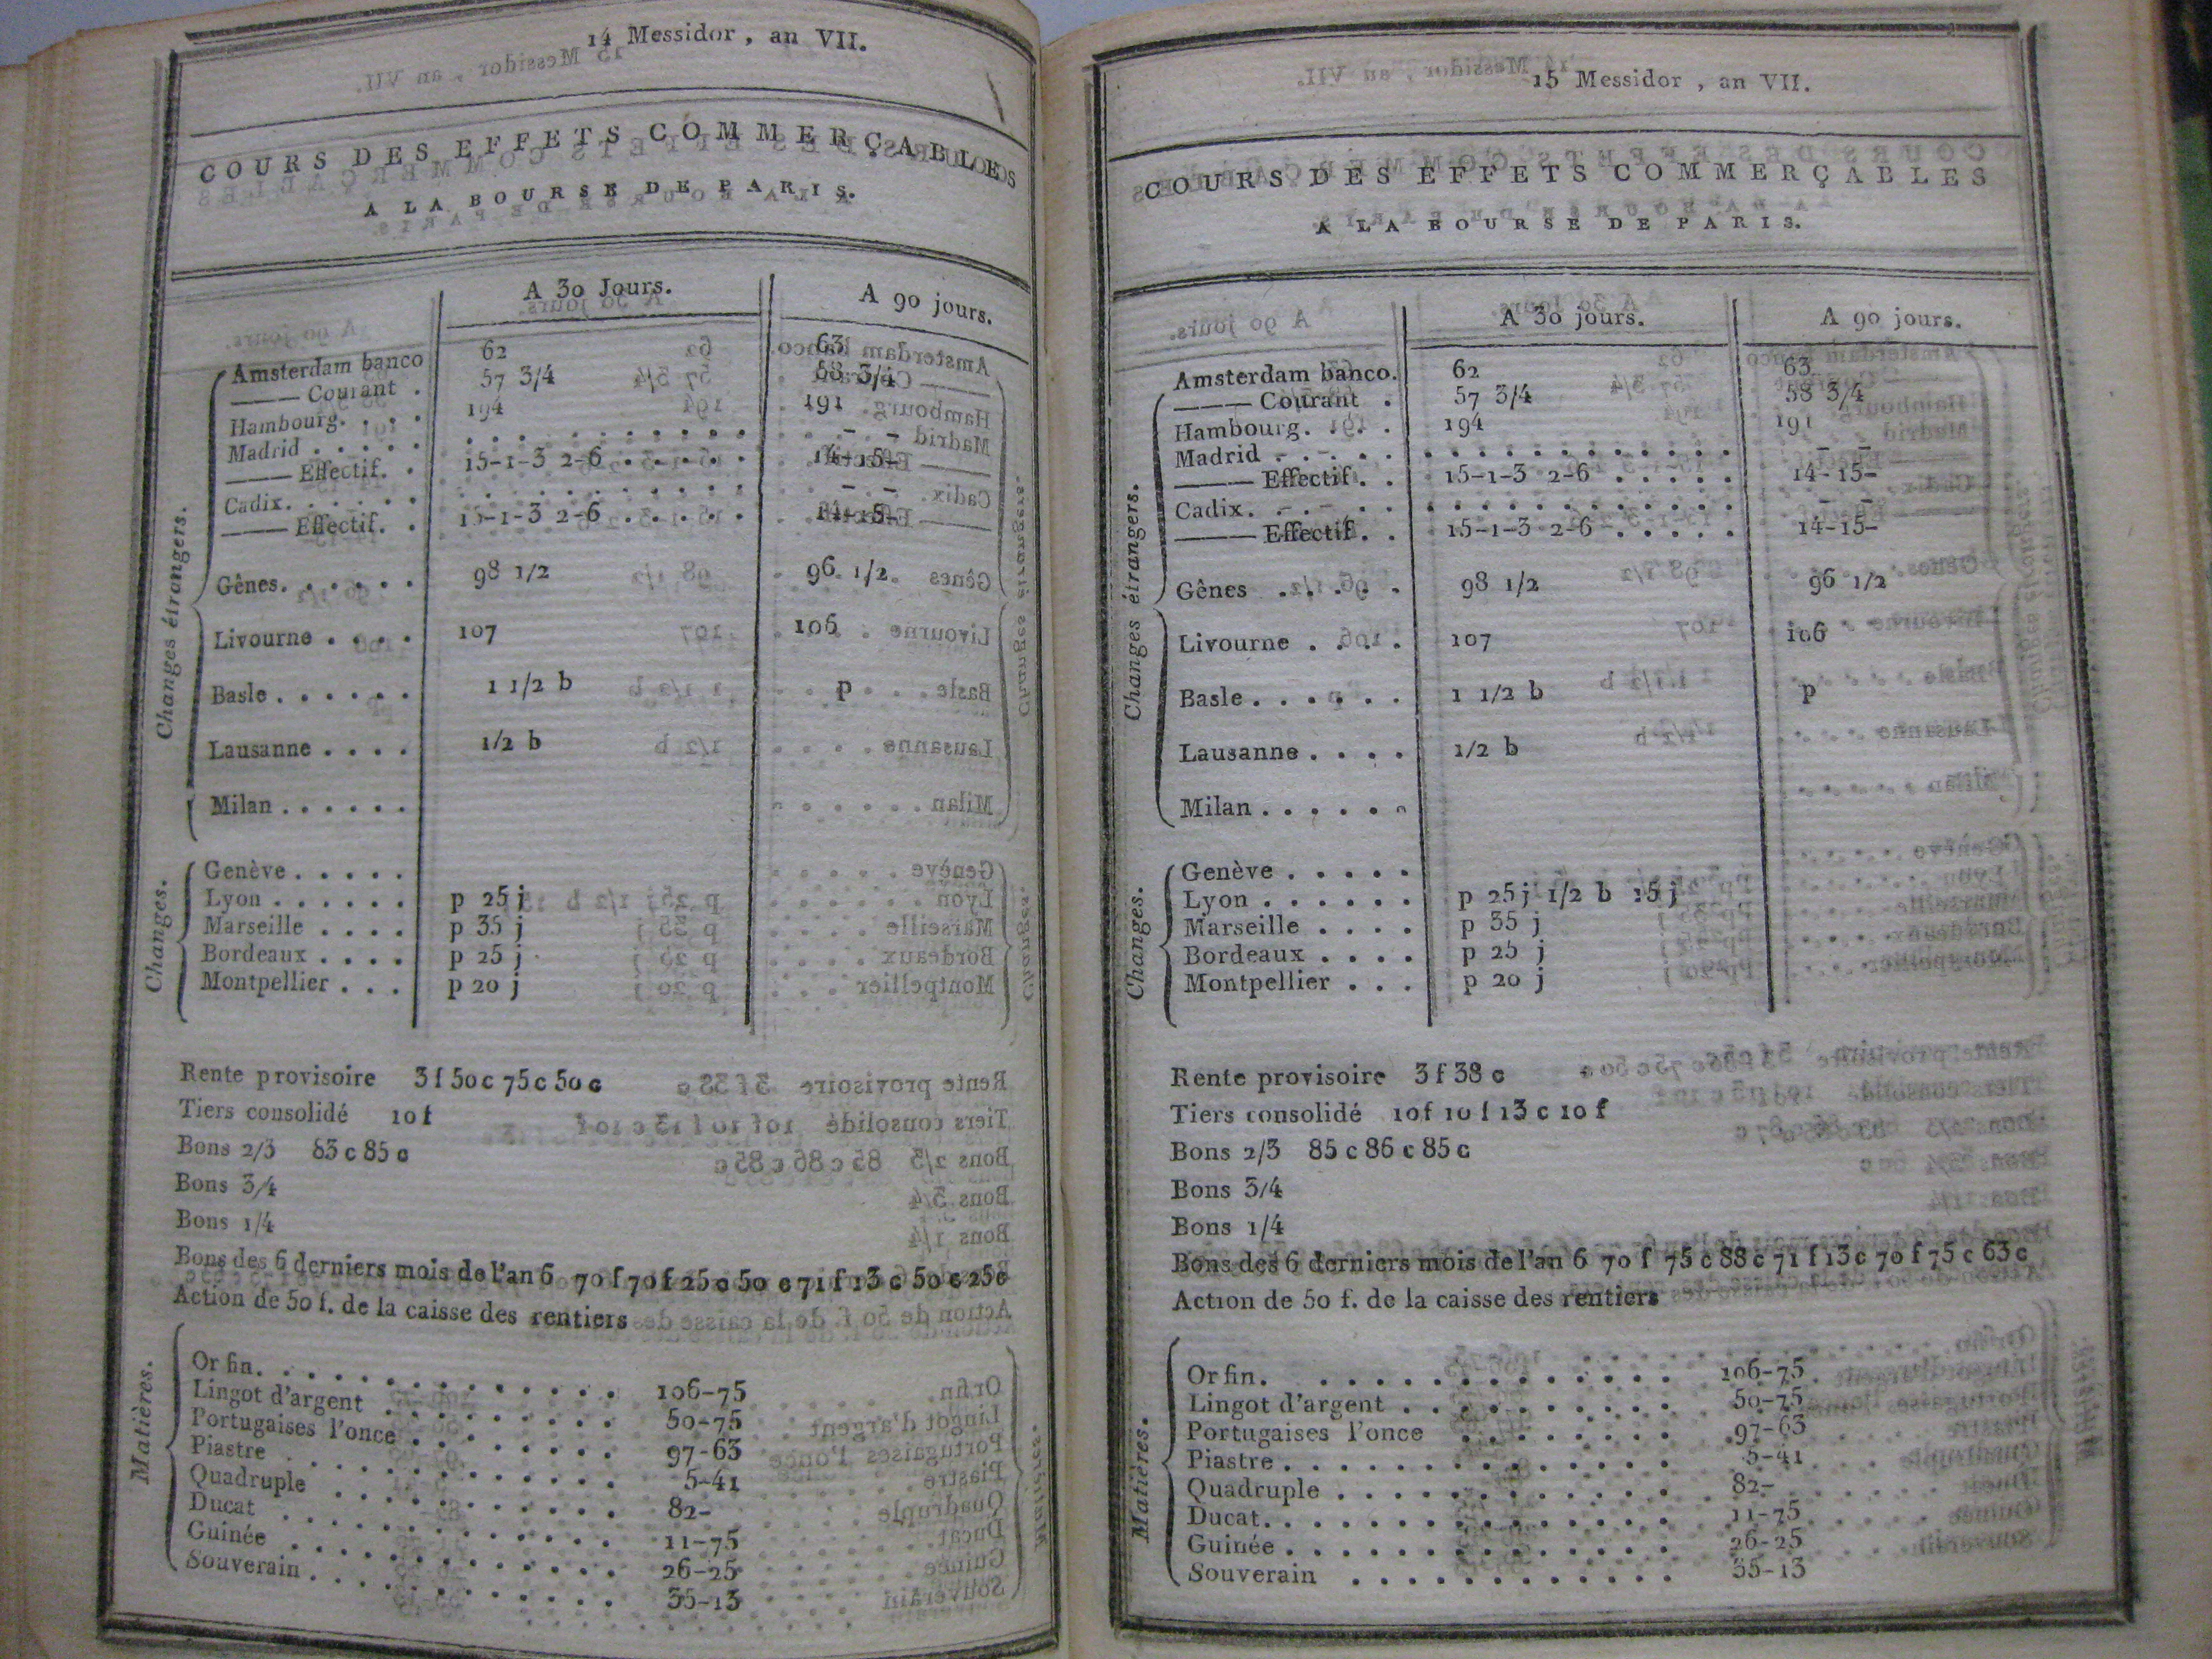 14 Messidor, an VII.
COURS DES EFFETS COMMERÇABLES
A LA BOURSE DE PARIS.
A 30 Jours. A 90 jours.
Changes étrangers.
Amsterdam banco 62 63
——— Courant . 57 3/4 58 3/4
Hambourg. . . . 194 191
Madrid . . . . . . . . . . . . . . . . – –
——— Effectif. . 15-1-3 2-6 . . . . . 14-15-
Cadix. . . . . . . . . . . . . . . . . – –
——— Effectif. . 15-1-3 2-6 . . . . . 14-15-
Gênes. . . . . . 98 1/2 96 1/2
Livourne . . . . 107 106
Basle . . . . . . 1 1/2 b p
Lausanne . . . . 1/2 b
Milan . . . . . .
Changes.
Genève . . . . .
Lyon . . . . . . p 25 j
Marseille . . . . p 35 j
Bordeaux . . . . p 25 j
Montpellier . . . p 20 j
Rente provisoire 3 f 50 c 75 c 50 c
Tiers consolidé 10 f
Bons 2/3 83 c 85 c
Bons 3/4
Bons 1/4
Bons des 6 derniers mois de l'an 6 70 f 70 f 25 c 50 c 71 f 13 c 50 c 25 c
Action de 50 f. de la caisse des rentiers
Matières.
Or fin. . . . . . . . . . . . . . 106-75
Lingot d'argent . . . . . . . . . 50-75
Portugaises l'once . . . . . . . . 97-63
Piastre . . . . . . . . . . . . . 5-41
Quadruple . . . . . . . . . . . 82-
Ducat . . . . . . . . . . . . . 11-75
Guinée . . . . . . . . . . . . . 26-25
Souverain . . . . . . . . . . . . 35-13
15 Messidor, an VII.
COURS DES EFFETS COMMERÇABLES
A LA BOURSE DE PARIS.
A 30 jours. A 90 jours.
Changes étrangers.
Amsterdam banco. 62 63
——— Courant . 57 3/4 58 3/4
Hambourg. . . . 194 191
Madrid . . . . . . . . . . . . . . . . – –
——— Effectif. . 15-1-3 2-6 . . . . . 14-15-
Cadix. . . . . . . . . . . . . . . . . – –
——— Effectif. . 15-1-3 2-6 . . . . . 14-15-
Gênes . . . . . 98 1/2 96 1/2
Livourne . . . . 107 106
Basle . . . . . . 1 1/2 b p
Lausanne . . . . 1/2 b
Milan . . . . . .
Changes.
Genève . . . . .
Lyon . . . . . . p 25 j 1/2 b 15 j
Marseille . . . . p 35 j
Bordeaux . . . . p 25 j
Montpellier . . . p 20 j
Rente provisoire 3 f 38 c
Tiers consolidé 10 f 10 f 13 c 10 f
Bons 2/3 85 c 86 c 85 c
Bons 3/4
Bons 1/4
Bons des 6 derniers mois de l'an 6 70 f 75 c 88 c 71 f 13 c 70 f 75 c 63 c
Action de 50 f. de la caisse des rentiers
Matières.
Or fin. . . . . . . . . . . . . . 106-75
Lingot d'argent . . . . . . . . . 50-75
Portugaises l'once . . . . . . . . 97-63
Piastre . . . . . . . . . . . . . 5-41
Quadruple . . . . . . . . . . . 82-
Ducat. . . . . . . . . . . . . . 11-75
Guinée . . . . . . . . . . . . . 26-25
Souverain . . . . . . . . . . . . 35-13